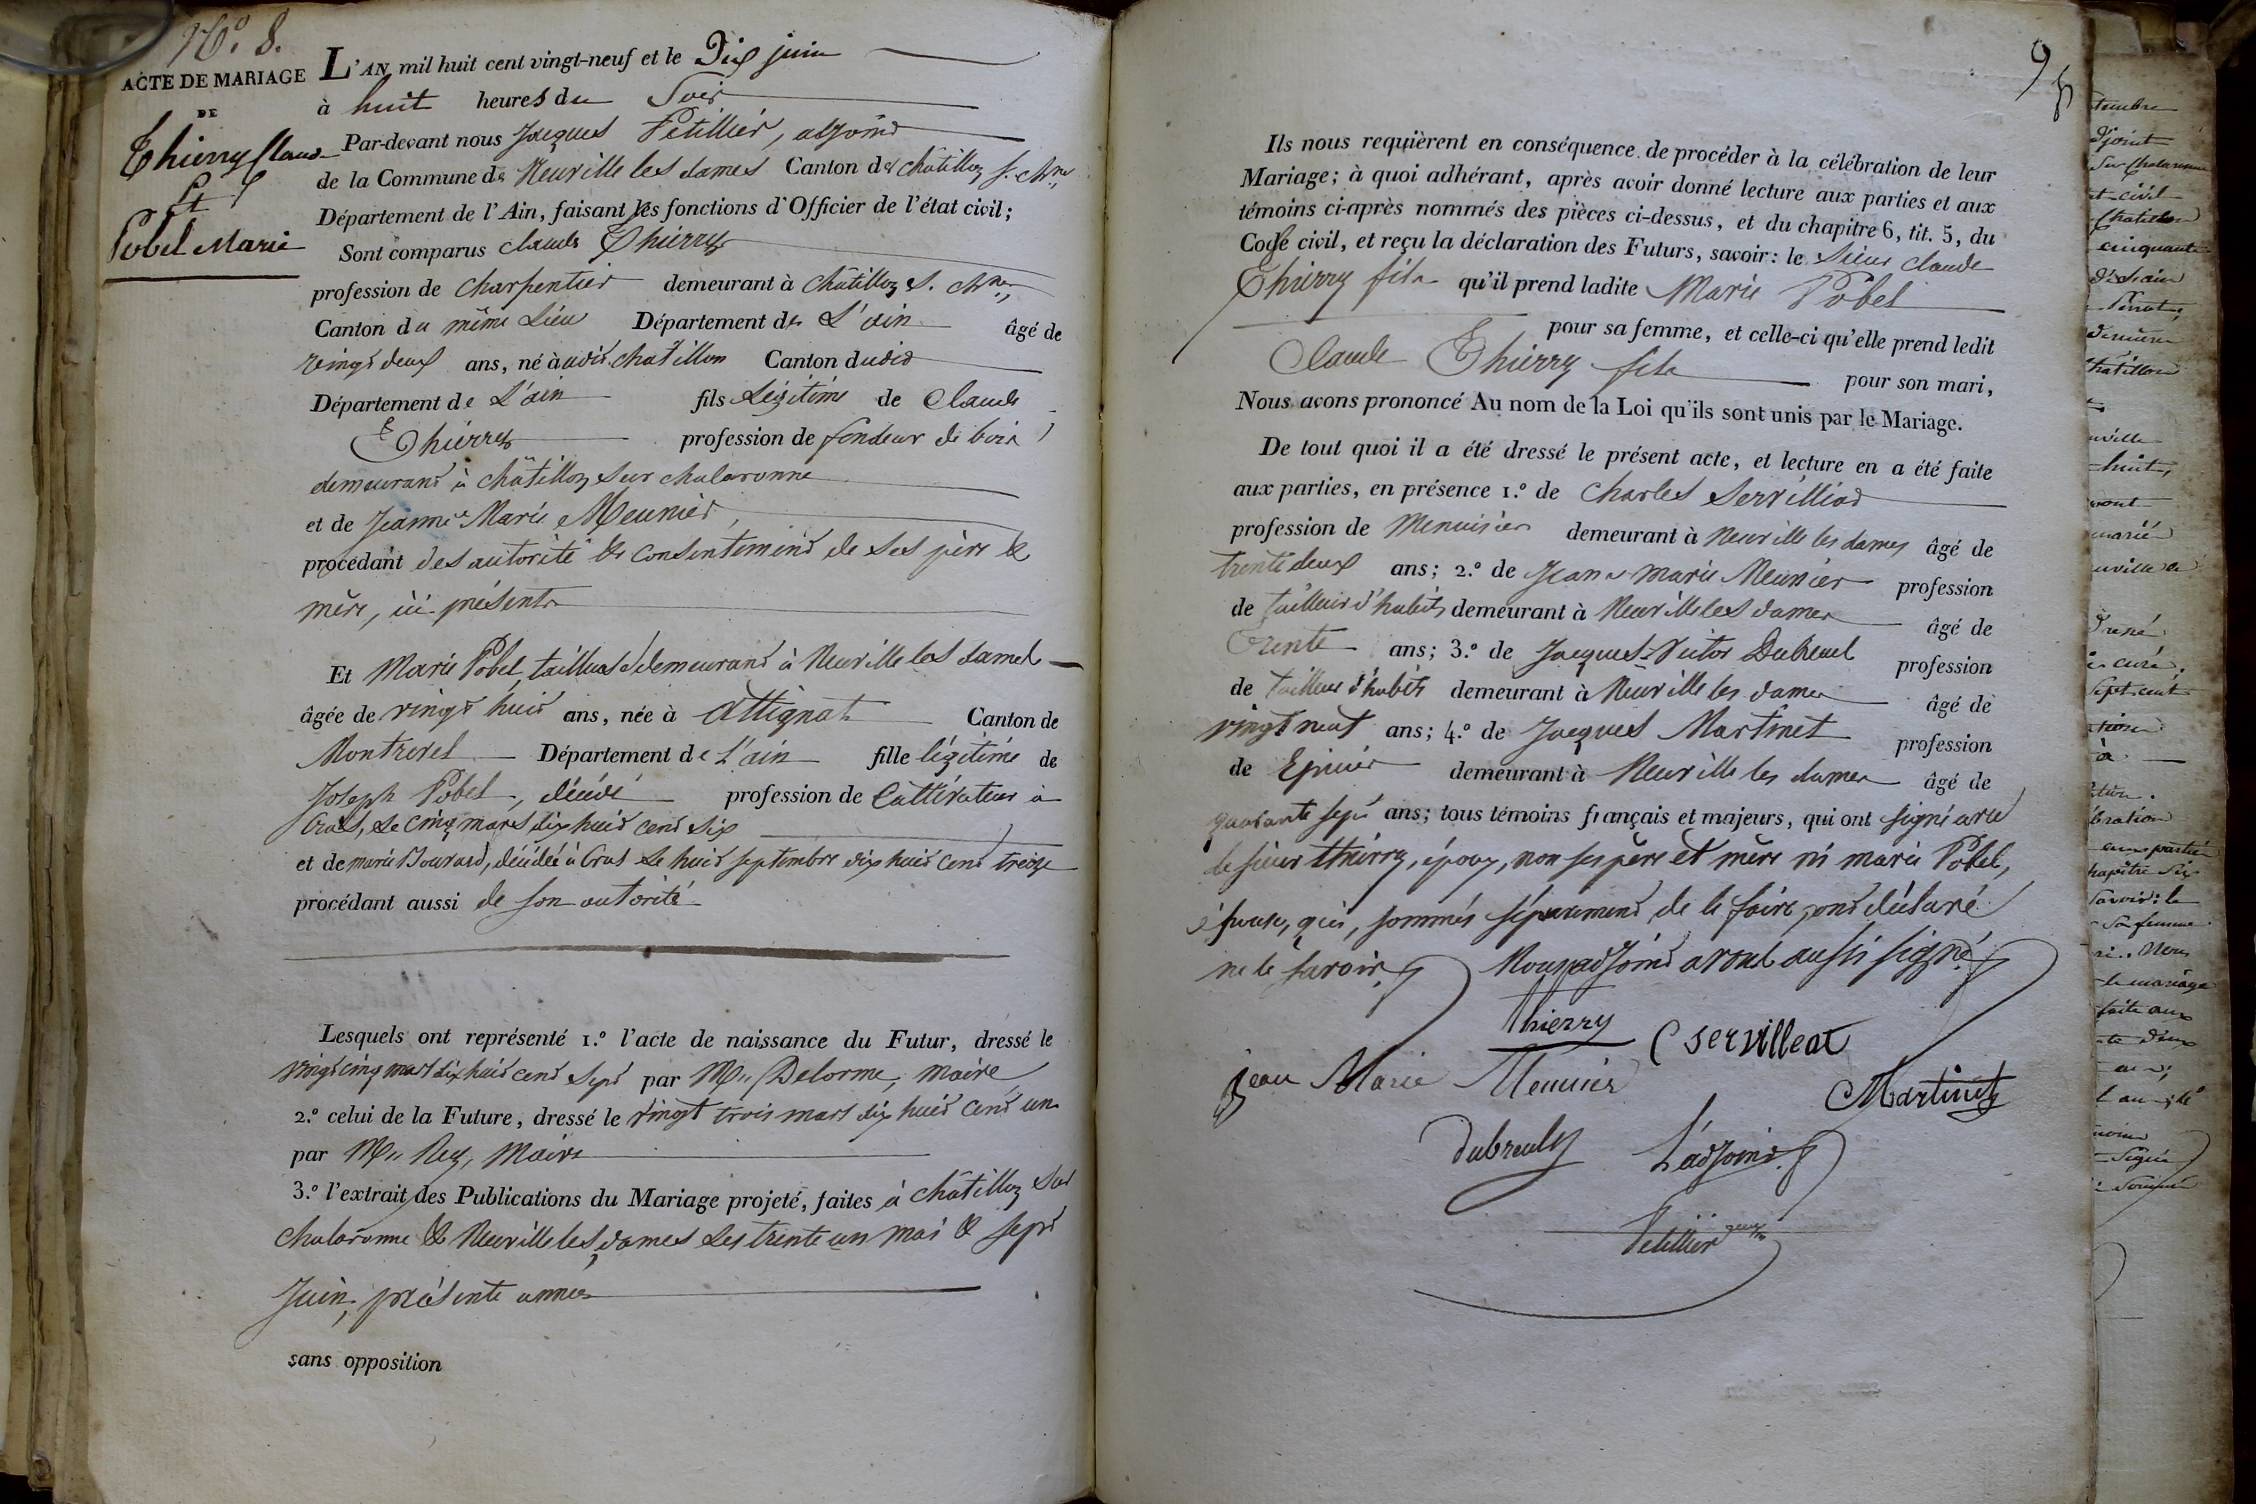 N.º 8.
ACTE DE MARIAGE
DE
Thierry Claude
Et
Pobel Marie
L'AN mil huit cent vingt-neuf et le Dix juin
à huit heures du Soir
Par-devant nous Jacques Petillier, adjoint
de la Commune de Neuville les dames Canton de châtillon s. Chne,
Département de l'Ain, faisant les fonctions d'Officier de l'état civil;
Sont comparus claude Thierry
profession de charpentier demeurant à châtillon s. Chne,
Canton du même Lieu Département de L'ain âgé de
vingt deux ans, né àudit chatillon Canton dudit
Département de L'ain fils légitime de Claude
Thierry profession de fendeur de bois,
demeurant à châtillon sur chalaronne
et de Jeanne Marie Meunier,
procédant des autorité & consentement de ses père &
mère, ici présents
Et Marie Pobel, tailleuse demeurant à Neuville les dames
âgée de vingt huit ans, née à Attignat Canton de
Montrevel Département de L'ain fille légitime de
Joseph Pobel, décédé profession de Cultivateur à
Cras, Le cinq mars dix huit cent six
et de marie Bouvard, décédée à Cras Le huit septembre dix huit cent treize
procédant aussi de son autorité
Lesquels ont représenté 1.º l'acte de naissance du Futur, dressé le
vingt cinq mars dix huit cent sept par Mr. Delorme, maire
2.º celui de la Future, dressé le vingt trois mars dix huit cent un
par Mr. Rey, Maire
3.º l'extrait des Publications du Mariage projeté, faites à châtillon sur
chalaronne & Neuville les dames Les trente un mai & sept
Juin, présente année
sans opposition
9
Ils nous requièrent en conséquence de procéder à la célébration de leur
Mariage; à quoi adhérant, après avoir donné lecture aux parties et aux
témoins ci-après nommés des pièces ci-dessus, et du chapitre 6, tit. 5, du
Code civil, et reçu la déclaration des Futurs, savoir: le Sieur claude
Thierry fils qu'il prend ladite Marie Pobel
pour sa femme, et celle-ci qu'elle prend ledit
Claude Thierry fils pour son mari,
Nous avons prononcé Au nom de la Loi qu'ils sont unis par le Mariage.
De tout quoi il a été dressé le présent acte, et lecture en a été faite
aux parties, en présence 1.º de Charles Servilliat
profession de Menuisier demeurant à Neuville les dames âgé de
trente deux ans; 2.º de Jean marie Meunier profession
de tailleur d'habits demeurant à Neuville les dames âgé de
Trente ans; 3.º de Jacques Victor Dubreuil profession
de tailleur d'habits demeurant à Neuville les dames âgé de
vingt neuf ans; 4.º de Jacques Martinet profession
de Epicier demeurant à Neuville les dames âgé de
quarante sept ans; tous témoins français et majeurs, qui ont signé avec
le sieur thierry, époux, non ses père et mère ni marie Pobel,
épouse, qui, sommés séparement de le faire, ont déclaré
ne le savoir, Nous adjoint avons aussi signé
Thierry
C servilleat
Jean Marie Meunier
Martinet
dubreuil
L'adjoint
Petillier